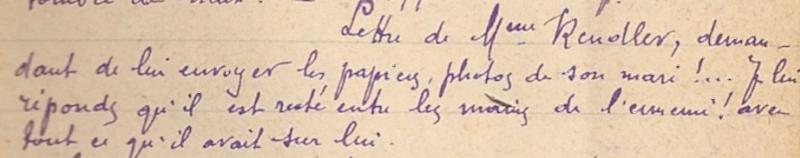 Lettre de Mme Kendler, deman-
dant de lui envoyer les papiers, photos de son mari !... Je lui
réponds qu'il est resté entre les mains de l'ennemi ! avec
tout ce qu'il avait sur lui.